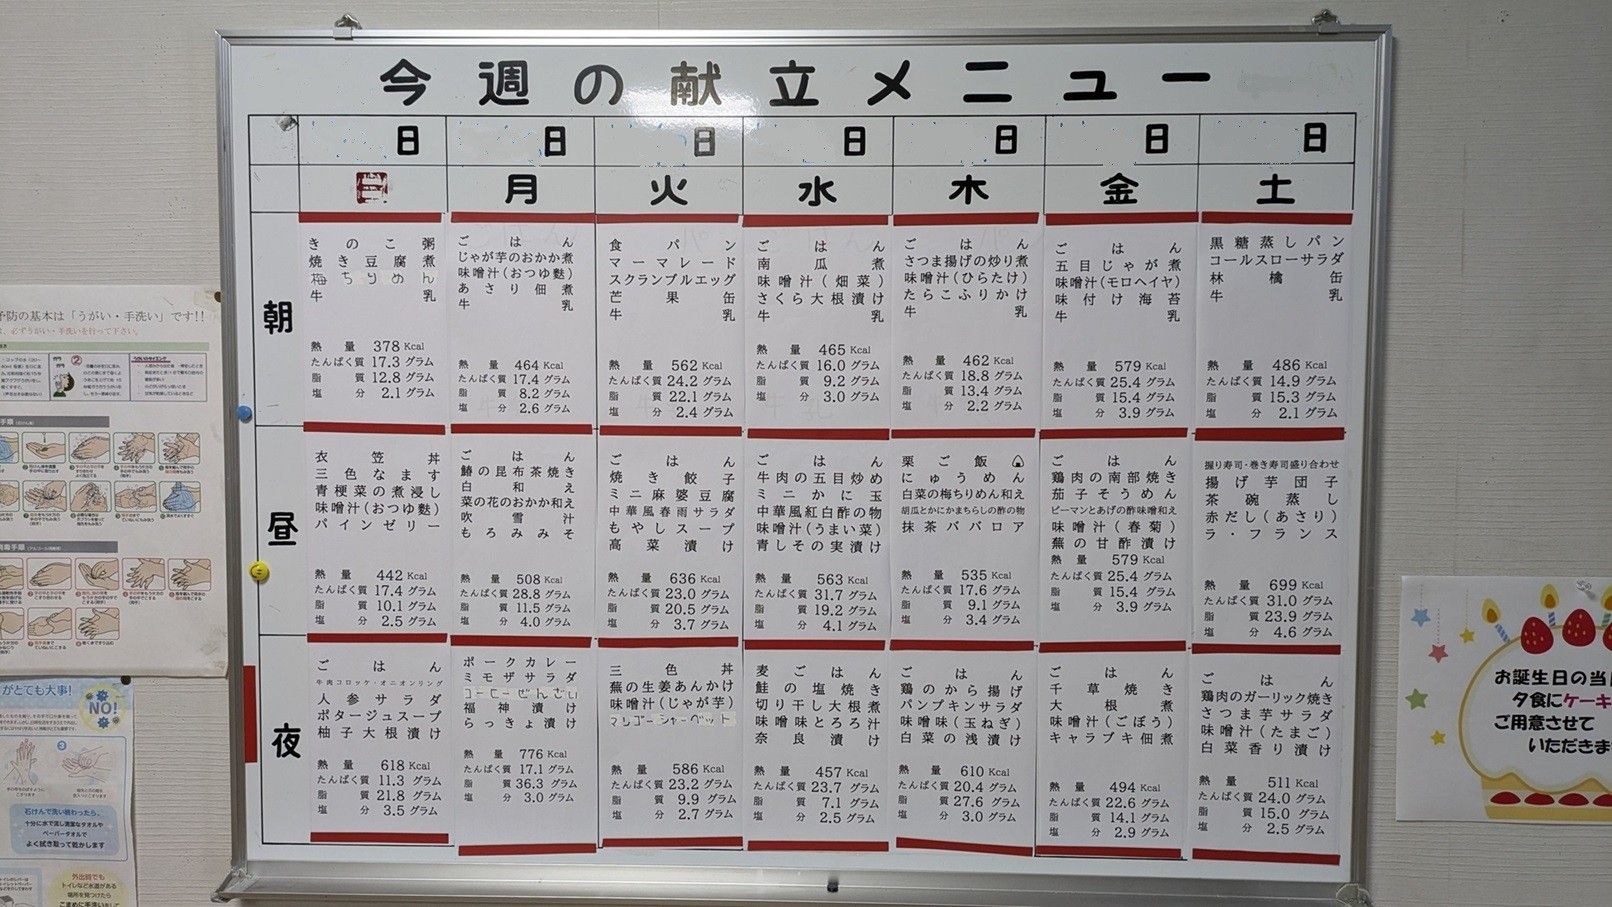 今週の献立メニュー
日 日 日 日 日 日 日
日 月 火 水 木 金 土
朝
きのこ粥
焼き豆腐煮
梅ちりめん
牛乳
熱量 378 Kcal
たんぱく質 17.3 グラム
脂質 12.8 グラム
塩分 2.1 グラム
ごはん
じゃが芋のおかか煮
味噌汁(おつゆ麩)
あさり佃煮
牛乳
熱量 464 Kcal
たんぱく質 17.4 グラム
脂質 8.2 グラム
塩分 2.6 グラム
食パン
マーマレード
スクランブルエッグ
芒果缶
牛乳
熱量 562 Kcal
たんぱく質 24.2 グラム
脂質 22.1 グラム
塩分 2.4 グラム
ごはん
南瓜煮
味噌汁(畑菜)
さくら大根漬け
牛乳
熱量 465 Kcal
たんぱく質 16.0 グラム
脂質 9.2 グラム
塩分 3.0 グラム
ごはん
さつま揚げの炒り煮
味噌汁(ひらたけ)
たらこふりかけ
牛乳
熱量 462 Kcal
たんぱく質 18.8 グラム
脂質 13.4 グラム
塩分 2.2 グラム
ごはん
五目じゃが煮
味噌汁(モロヘイヤ)
味付け海苔
牛乳
熱量 579 Kcal
たんぱく質 25.4 グラム
脂質 15.4 グラム
塩分 3.9 グラム
黒糖蒸しパン
コールスローサラダ
林檎缶
牛乳
熱量 486 Kcal
たんぱく質 14.9 グラム
脂質 15.3 グラム
塩分 2.1 グラム
昼
衣笠丼
三色なます
青梗菜の煮浸し
味噌汁(おつゆ麩)
パインゼリー
熱量 442 Kcal
たんぱく質 17.4 グラム
脂質 10.1 グラム
塩分 2.5 グラム
ごはん
鰆の昆布茶焼き
白和え
菜の花のおかか和え
吹雪汁
もろみみそ
熱量 508 Kcal
たんぱく質 28.8 グラム
脂質 11.5 グラム
塩分 4.0 グラム
ごはん
焼き餃子
ミニ麻婆豆腐
中華風春雨サラダ
もやしスープ
高菜漬け
熱量 636 Kcal
たんぱく質 23.0 グラム
脂質 20.5 グラム
塩分 3.7 グラム
ごはん
牛肉の五目炒め
ミニかに玉
中華風紅白酢の物
味噌汁(うまい菜)
青しその実漬け
熱量 563 Kcal
たんぱく質 31.7 グラム
脂質 19.2 グラム
塩分 4.1 グラム
栗ご飯
にゅうめん
白菜の梅ちりめん和え
胡瓜とかにかまちらしの酢の物
抹茶ババロア
熱量 535 Kcal
たんぱく質 17.6 グラム
脂質 9.1 グラム
塩分 3.4 グラム
ごはん
鶏肉の南部焼き
茄子そうめん
ピーマンとあげの酢味噌和え
味噌汁(春菊)
蕪の甘酢漬け
熱量 579 Kcal
たんぱく質 25.4 グラム
脂質 15.4 グラム
塩分 3.9 グラム
握り寿司・巻き寿司盛り合わせ
揚げ芋団子
茶碗蒸し
赤だし(あさり)
ラ・フランス
熱量 699 Kcal
たんぱく質 31.0 グラム
脂質 23.9 グラム
塩分 4.6 グラム
夜
ごはん
牛肉コロッケ・オニオンリング
人参サラダ
ポタージュスープ
柚子大根漬け
熱量 618 Kcal
たんぱく質 11.3 グラム
脂質 21.8 グラム
塩分 3.5 グラム
ポークカレー
ミモザサラダ
コーヒーぜんざい
福神漬け
らっきょ漬け
熱量 776 Kcal
たんぱく質 17.1 グラム
脂質 36.3 グラム
塩分 3.0 グラム
三色丼
蕪の生姜あんかけ
味噌汁(じゃが芋)
マンゴーシャーベット
熱量 586 Kcal
たんぱく質 23.2 グラム
脂質 9.9 グラム
塩分 2.7 グラム
麦ごはん
鮭の塩焼き
切り干し大根煮
味噌味とろろ汁
奈良漬け
熱量 457 Kcal
たんぱく質 23.7 グラム
脂質 7.1 グラム
塩分 2.5 グラム
ごはん
鶏のから揚げ
パンプキンサラダ
味噌味(玉ねぎ)
白菜の浅漬け
熱量 610 Kcal
たんぱく質 20.4 グラム
脂質 27.6 グラム
塩分 3.0 グラム
ごはん
千草焼き
大根煮
味噌汁(ごぼう)
キャラブキ佃煮
熱量 494 Kcal
たんぱく質 22.6 グラム
脂質 14.1 グラム
塩分 2.9 グラム
ごはん
鶏肉のガーリック焼き
さつま芋サラダ
味噌汁(たまご)
白菜香り漬け
熱量 511 Kcal
たんぱく質 24.0 グラム
脂質 15.0 グラム
塩分 2.5 グラム
予防の基本は「うがい・手洗い」です!!
必ずうがい・手洗いを行って下さい。
がとても大事!
NO!
石けんで洗い終わったら、
十分に水で流し清潔なタオルや
ペーパータオルで
よく拭き取って乾かします
外出前でも
トイレなど水道がある
場所を見つけたら
こまめに手洗い
お誕生日の当
夕食にケーキ
ご用意させて
いただきま